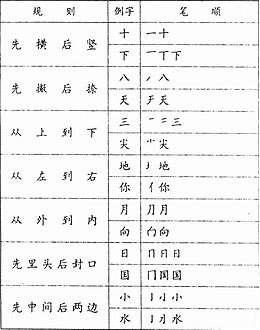 规则 例字 笔顺
先横后竖 十 一十
下 一丅下
先撇后捺 八 丿八
天 天
从上到下 三 一二三
尖 小尖
从左到右 地 地
你 亻你
从外到内 月 ⺆月
向 向
先里头后封口 日 冂日日
国 冂国国
先中间后两边 小 亅小小
水 亅水